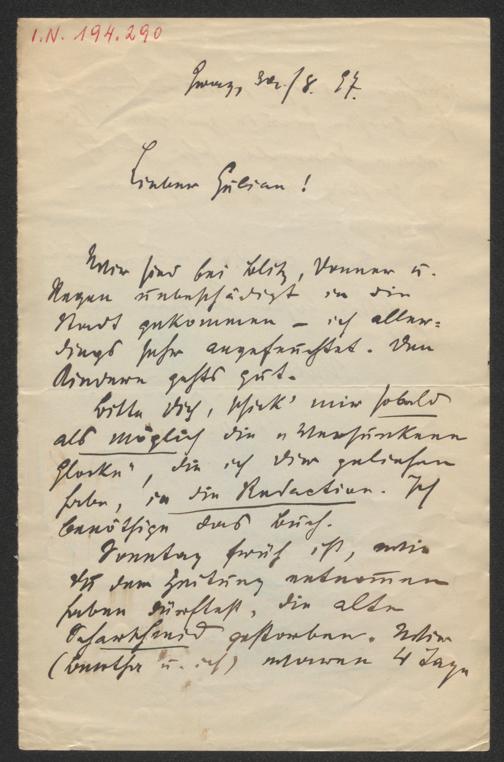 I.N. 194.290
Graz, 30./8. 97.
Lieber Gülian!
Wir sind bei Blitz, Donner u.
Regen unbeschädigt in die
Stadt gekommen – ich aller=
dings sehr angefeuchtet. Den
Kindern gehts gut.
Bitte Dich, schick' mir sobald
als möglich die „Versunkene
Glocke", die ich Dir geliehen
habe, in die Redaction. Ich
benöthige das Buch.
Sonntag früh ist, wie
Du dem Zeitung entnommen
haben dürftest, die alte
gestorben. Wir
(Bertha u. ich) waren 4 Tage